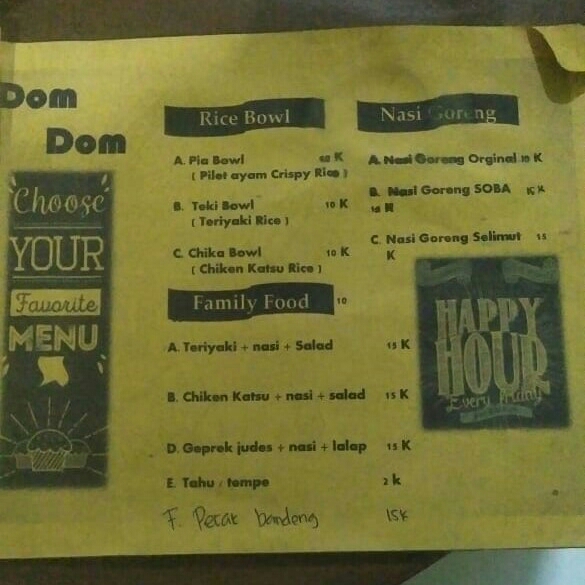 Dom
Dom
Choose
YOUR
Favorite
MENU
Rice Bowl
A. Pia Bowl K
( Pilet ayam Crispy Rice )
B. Teki Bowl 10 K
( Teriyaki Rice )
C. Chika Bowl 10 K
( Chiken Katsu Rice )
Family Food 10
A. Teriyaki + nasi + Salad 15 K
B. Chiken Katsu + nasi + salad 15 K
D. Geprek judes + nasi + lalap 15 K
E. Tahu / tempe 2 k
F. Pecak bandeng 15k
Nasi Goreng
A. Nasi Goreng Orginal K
B. Nasi Goreng SOBA 15 K
K
C. Nasi Goreng Selimut 15
K
HAPPY
HOUR
Every Friday